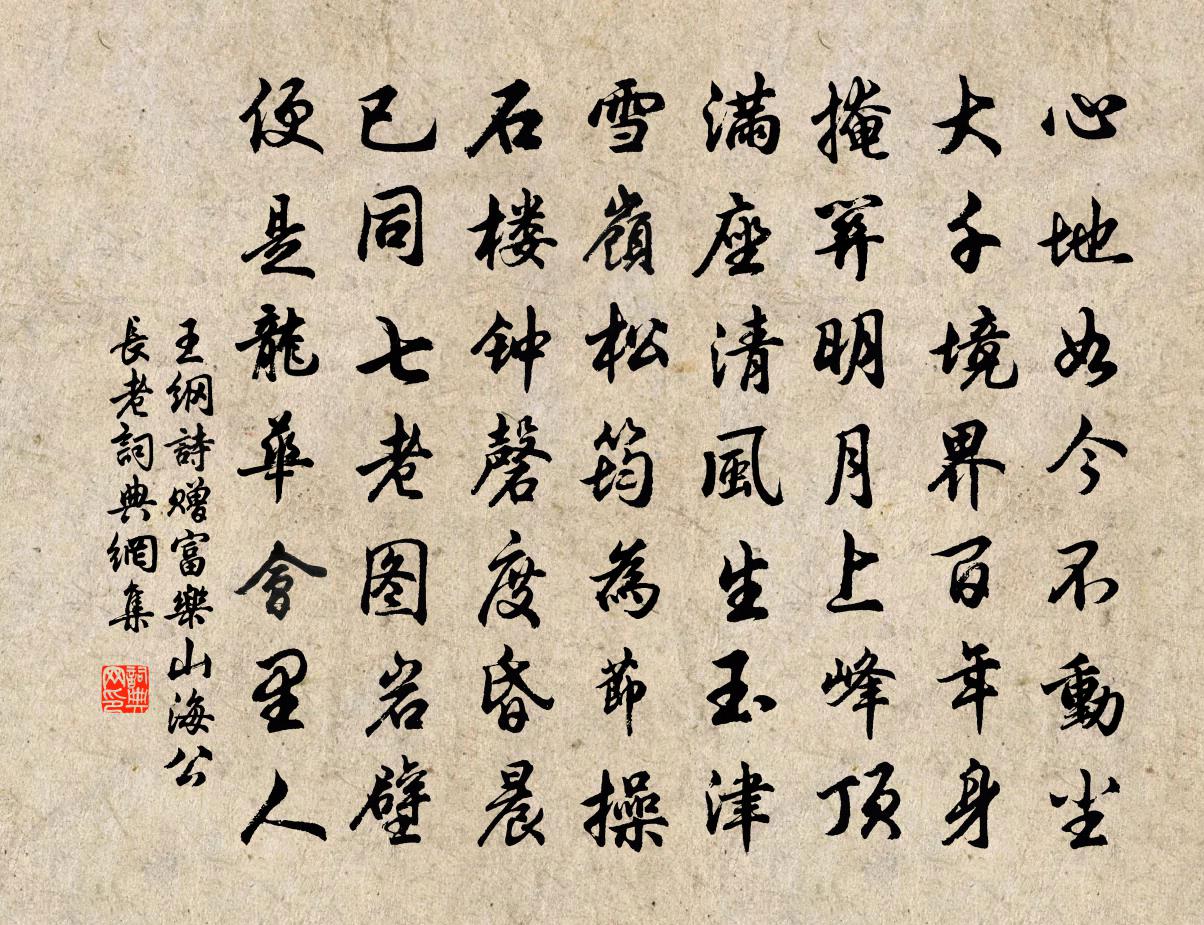 心地如今不動尘
大千境界百年身
掩关明月上峰顶
满座清風生玉津
雪嶺松筠為節操
石楼钟磬度昏晨
已同七老图岩壁
便是龍華會里人
王綱詩赠富樂山海公
長老詞典網集
詞典
网印